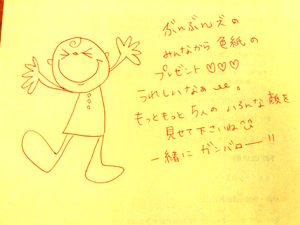 ぶんぶんズの
みんなから 色紙の
プレゼント♡♡♡
うれしいなぁ 。
もっともっと 5人の いろんな顔を
見せて下さいね
一緒に ガンバロー!!